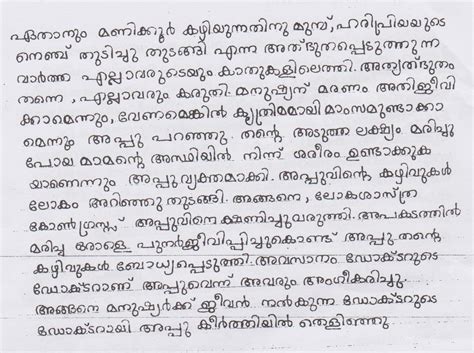 ഏതാനും മണിക്കൂർ കഴിയുന്നതിനു മുമ്പ്, ഹരിപ്രിയയുടെ
നെഞ്ച് തുടിച്ചു തുടങ്ങി എന്ന അത്ഭുതപ്പെടുത്തുന്ന
വാർത്ത എല്ലാവരുടെയും കാതുകളിലെത്തി. അത്യത്ഭുതം
തന്നെ, എല്ലാവരും കരുതി. മനുഷ്യന് മരണം അതിജീവി
ക്കാമെന്നും, വേണമെങ്കിൽ കൃത്രിമമായി മാംസമുണ്ടാക്കാ
മെന്നും അപ്പു പറഞ്ഞു. തന്റെ അടുത്ത ലക്ഷ്യം മരിച്ചു
പോയ മാമന്റെ അസ്ഥിയിൽ നിന്ന് ശരീരം ഉണ്ടാക്കുക
യാണെന്നും അപ്പു വ്യക്തമാക്കി. അപ്പുവിന്റെ കഴിവുകൾ
ലോകം അറിഞ്ഞു തുടങ്ങി. അങ്ങനെ, ലോകശാസ്ത്ര
കോൺഗ്രസ്സ് അപ്പുവിനെ ക്ഷണിച്ചു വരുത്തി. അപകടത്തിൽ
മരിച്ച ഒരാളെ പുനർജീവിപ്പിച്ചുകൊണ്ട് അപ്പു തന്റെ
കഴിവുകൾ ബോധ്യപ്പെടുത്തി. അവസാനം ഡോക്ടറുടെ
ഡോക്ടറാണ് അപ്പുവെന്ന് അവരും അംഗീകരിച്ചു.
അങ്ങനെ മനുഷ്യർക്ക് ജീവൻ നൽകുന്ന ഡോക്ടറുടെ
ഡോക്ടറായി അപ്പു കീർത്തിയിൽ തെളിഞ്ഞു.